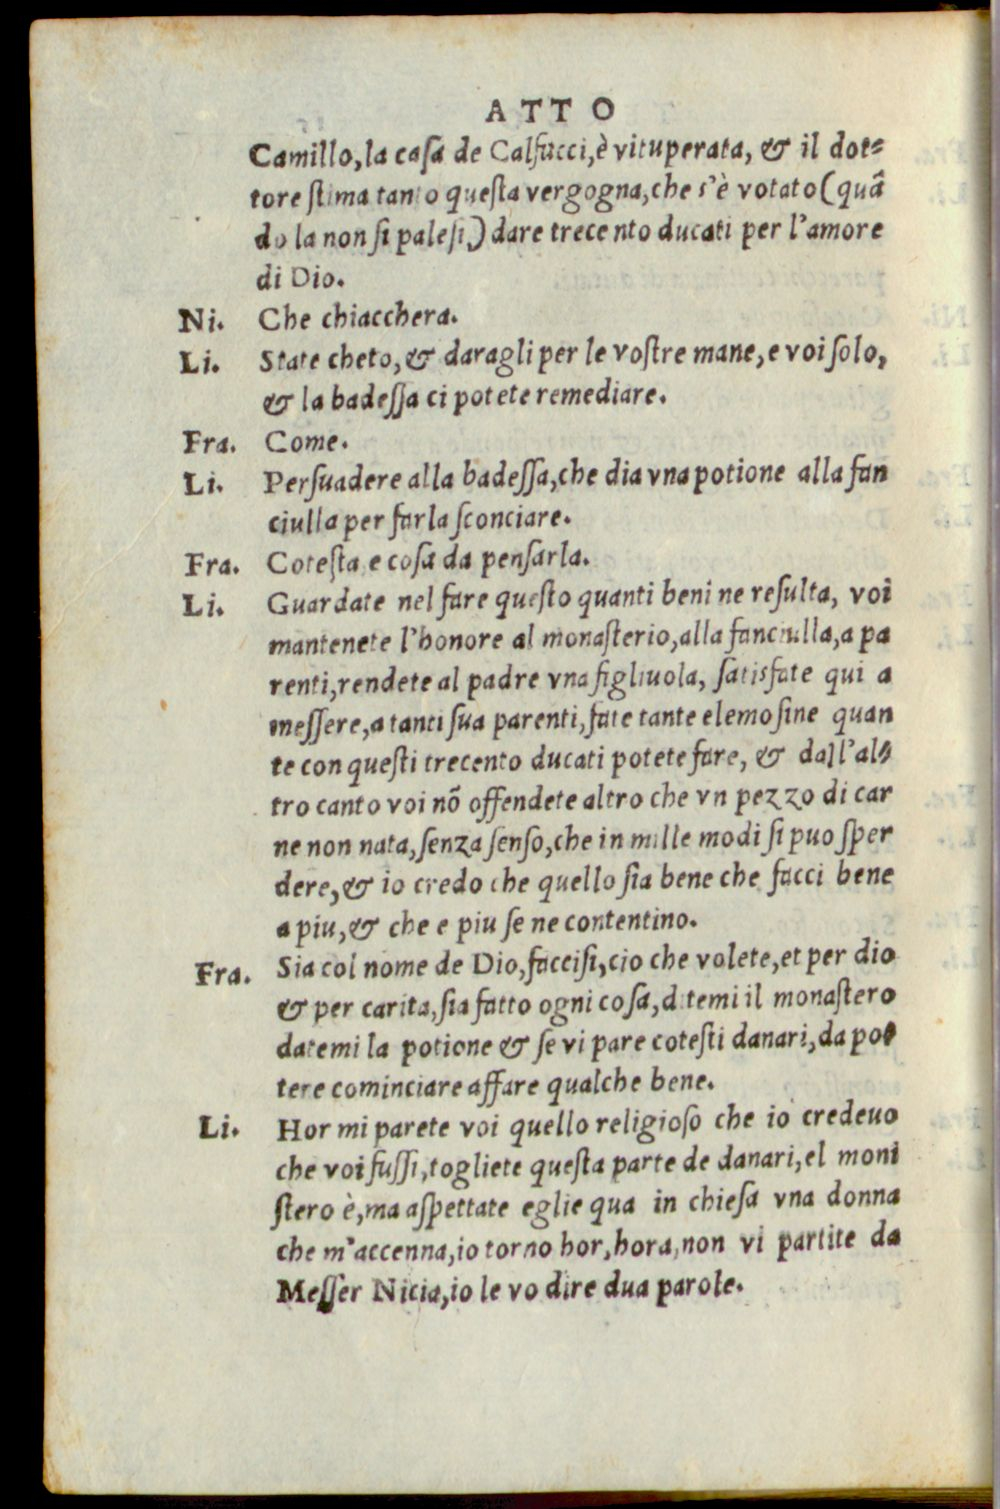 ATTO
Camillo, la casa de Calfucci, è vituperata, & il dot-
tore stima tanto questa vergogna, che s'è votato (quã
do la non si palesi,) dare trecento ducati per l'amore
di Dio.
Ni. Che chiacchera.
Li. State cheto, & daragli per le vostre mane, e voi solo,
& la badessa ci potete remediare.
Fra. Come.
Li. Persuadere alla badessa, che dia vna potione alla fan
ciulla per farla sconciare.
Fra. Cotesta e cosa da pensarla.
Li. Guardate nel fare questo quanti beni ne resulta, voi
mantenete l'honore al monasterio, alla fanciulla, a pa
renti, rendete al padre vna figliuola, satisfate qui a
messere, a tanti sua parenti, fate tante elemosine quan
te con questi trecento ducati potete fare, & dall'al-
tro canto voi nõ offendete altro che vn pezzo di car
ne non nata, senza senso, che in mille modi si puo sper
dere, & io credo che quello sia bene che facci bene
a piu, & che e piu se ne contentino.
Fra. Sia col nome de Dio, faccisi, cio che volete, et per dio
& per carita, sia fatto ogni cosa, ditemi il monastero
datemi la potione & se vi pare cotesti danari, da po-
tere cominciare affare qualche bene.
Li. Hor mi parete voi quello religioso che io credeuo
che voi fussi, togliete questa parte de danari, el moni
stero è, ma aspettate eglie qua in chiesa vna donna
che m'accenna, io torno hor, hora, non vi partite da
Messer Nicia, io le vo dire dua parole.